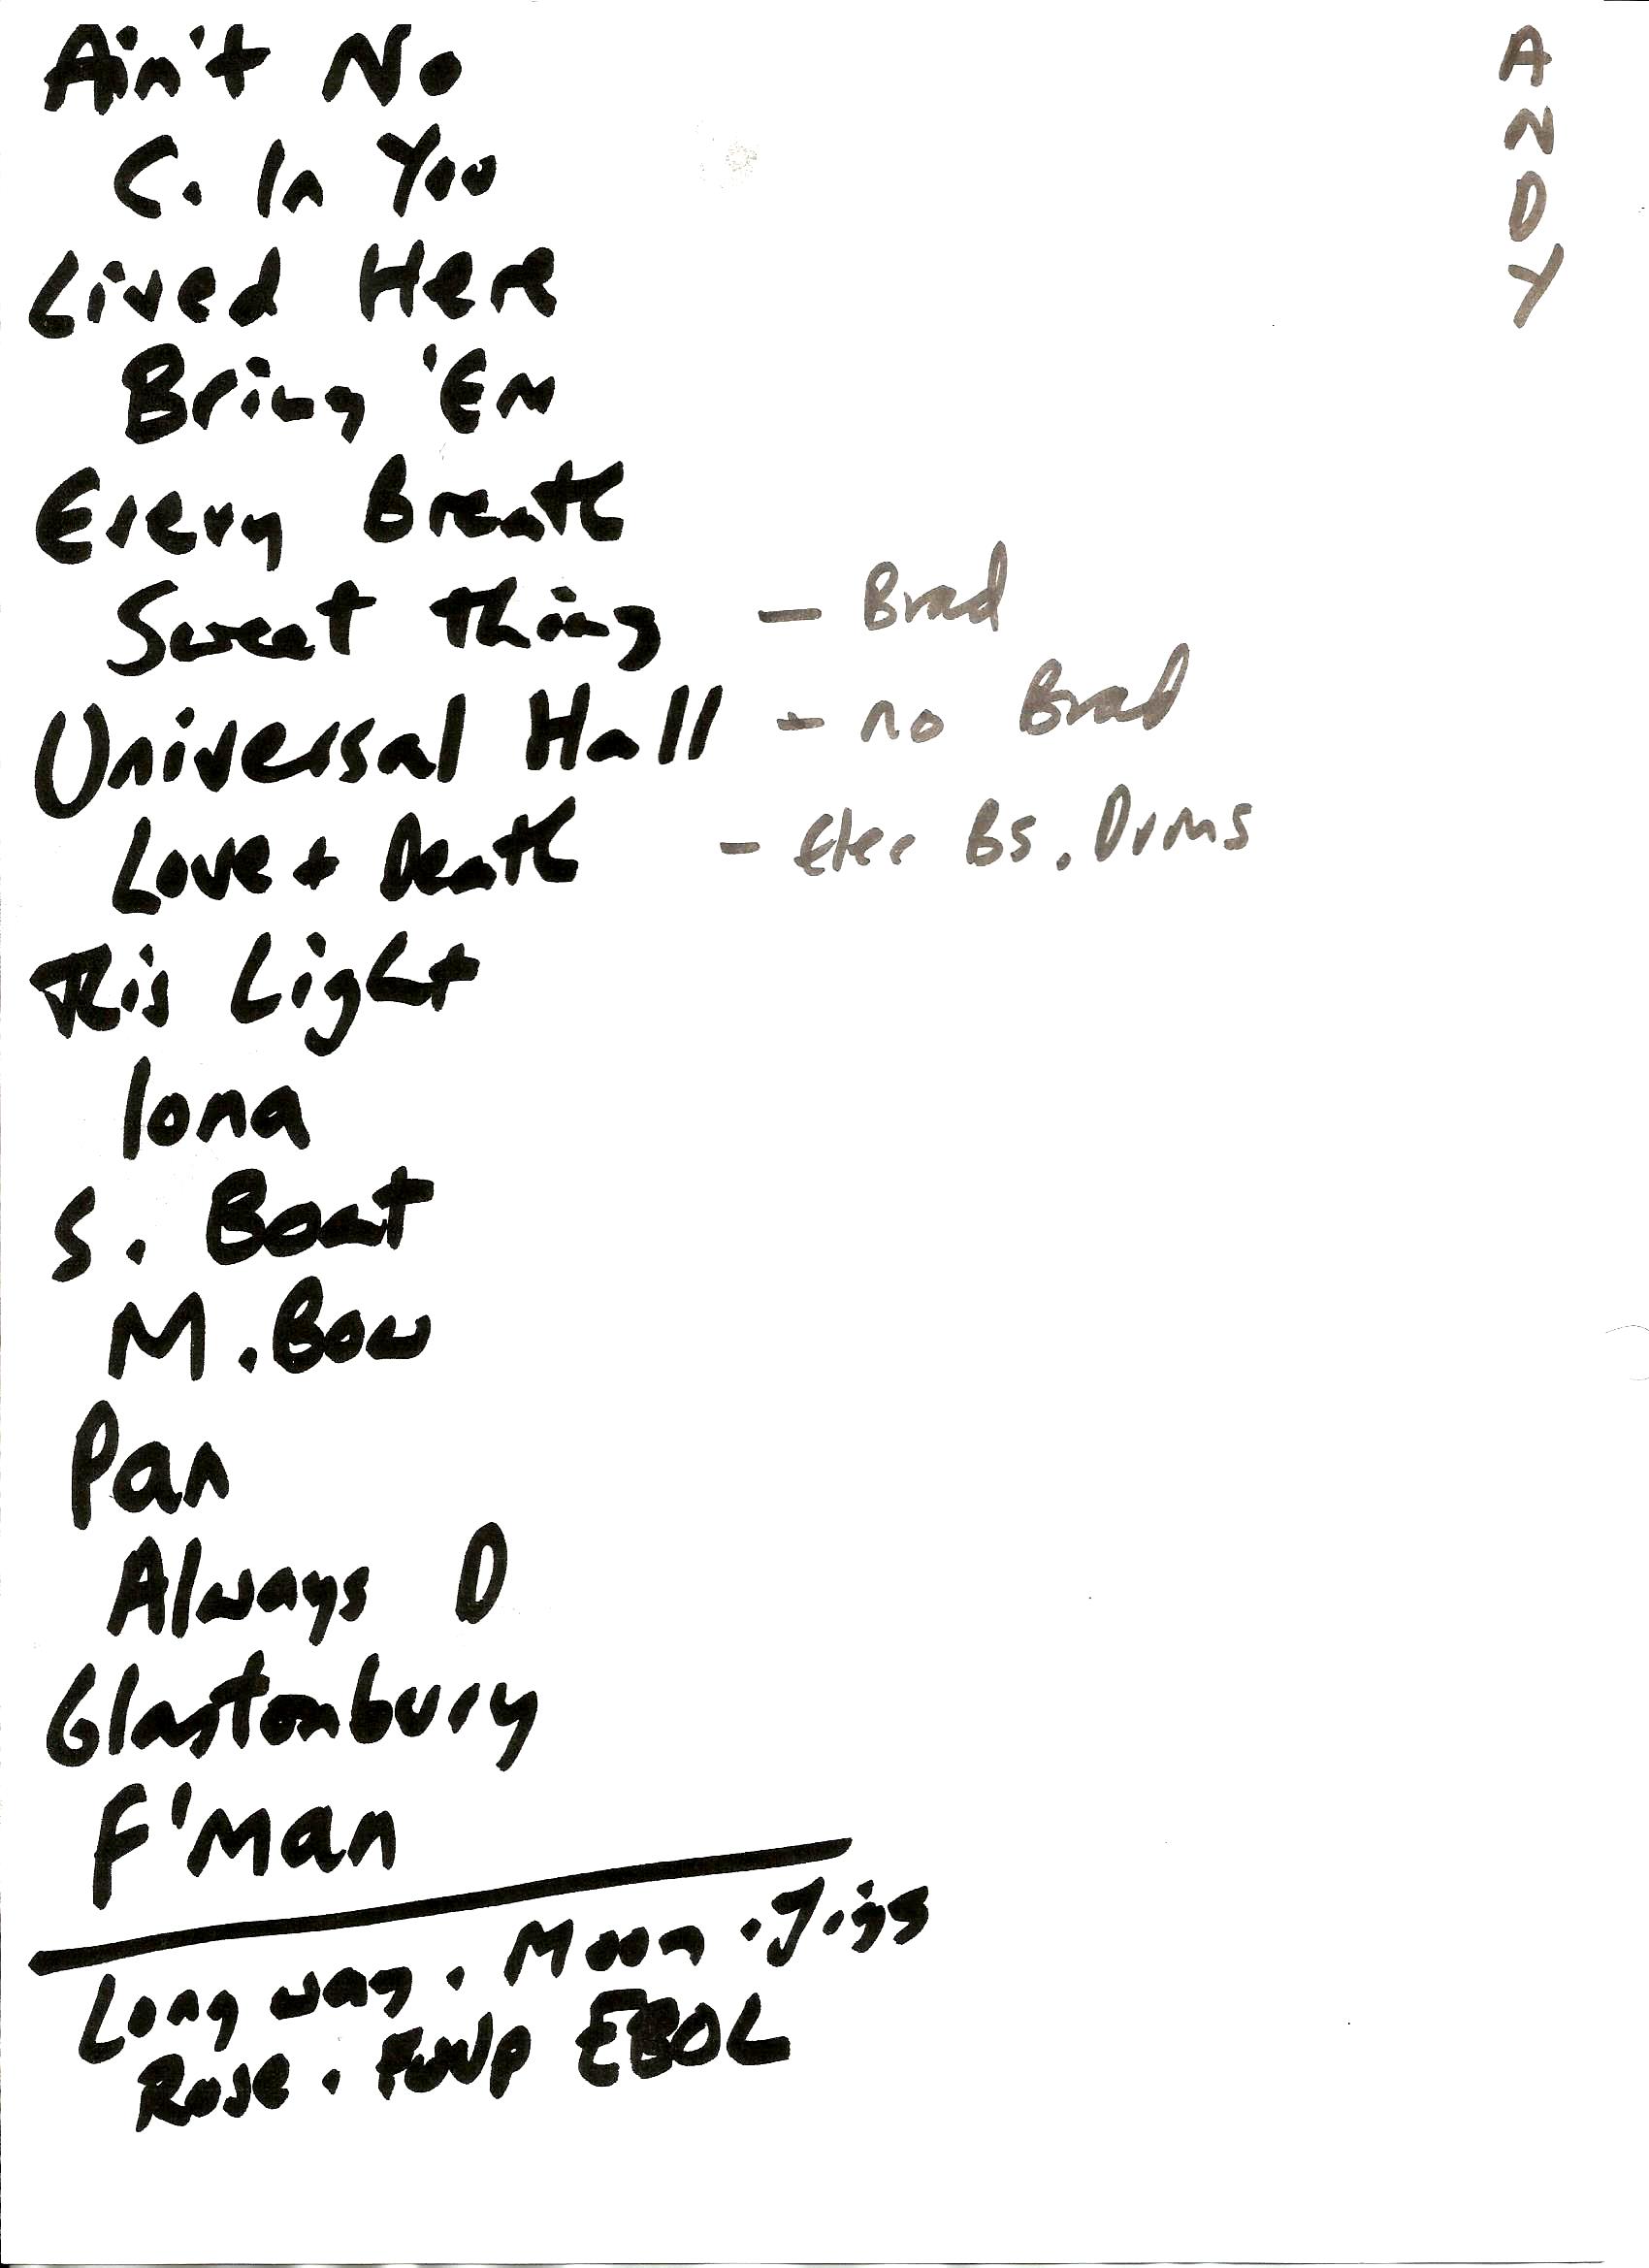 Ain't No
C. In You
Lived Here
Bring 'Em
Every Breath
Sweet thing - Brad
Universal Hall - no Brad
Love + Death - Elec Bs. Drums
This Light
Iona
S. Boat
M. Bow
Pan
Always D
Glastonbury
F'Man
Long way. Moon. Jigs
Rose. EBOL
ANDY